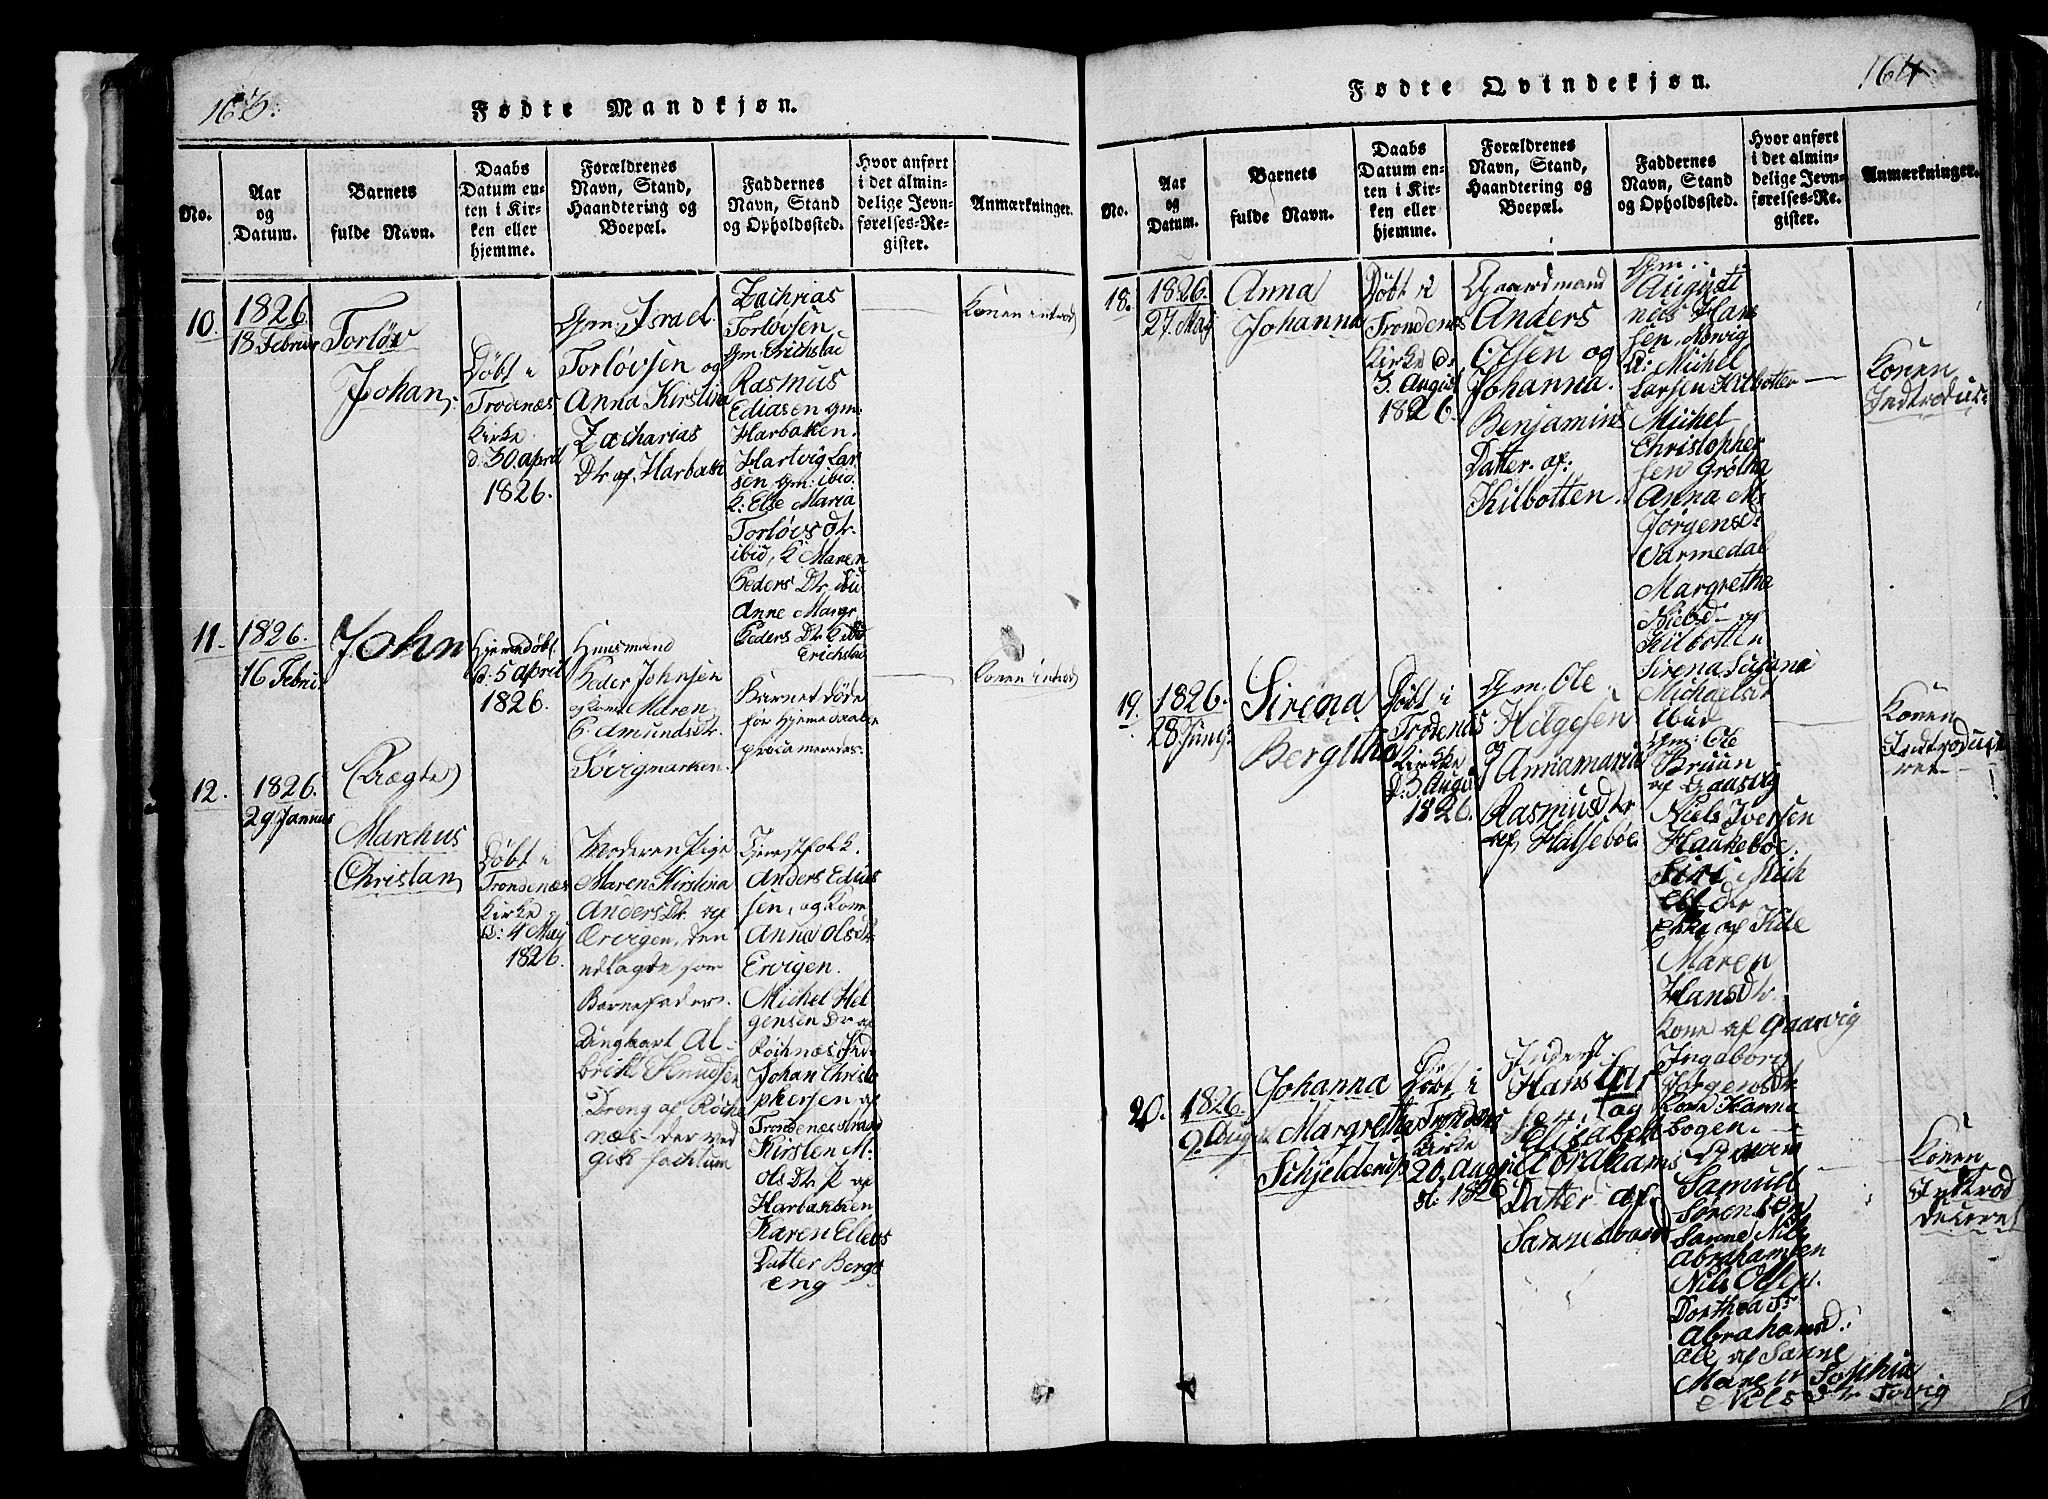 163.
Fødte Mandkjøn.
No.
Aar
og
Datum.
Barnets
fulde Navn.
Daabs
Datum en-
ten i Kir-
ken eller
hjemme.
Forældrenes
Navn, Stand,
Haandtering og
Boepæl.
Faddernes
Navn, Stand
og Opholdssted.
Hvor anført
i det almin-
delige Jevn-
førelses-Re-
gister.
Anmærkninger.
10.
1826.
18 Februar
Torløv
Johan,
Døbt i
Trodenæs
Kirke
d. 30. april
1826.
Gm: Israel
Torløvsen og
Anna Kirstina
Zacharias
Dtr af. Harbak
Zachrias
Torlovsen
Gm: Erichstad
Rasmus
Ediasen gm:
Harbaken.
Hartvig Lar
sen gm: ibid.
K: Else Maria
Torløvs dtr.
ibid, K Maren
Peders Dtr. ibid
Anne Margr
Peders Dtr. K ibid
Erichstad
Konen introd
11.
1826.
16 Februar
John
Hjemedøbt
d: 5 april
1826.
Huusmand
Peder Johnsen
og Kone Maren
Edmundsdtr.
Sørvigmarken.
Barnet døde
før Hjemedaaben
Konen introd
12.
1826.
29 Januar
(Uægte)
Marchus
Christan,
Døbt i
Trondenæs
Kirke
d: 4 May
1826.
Moderen Pige
Maren Kirstina
Anders Dtr. af
Ervigen, den
udlagde for
Barnefader
Albricht Knudsen
Dreng af Røche
næs - der ved
gik factum
Tjenestfolk.
Anders Edias
sen, og Kone
Anna Olsdtr
Ervigen.
Michel Hel
gensen Dr af
Røchnæs
Johan Christo
phersen af
Trondenæs
Kirsten M:
Ols Dtr. P af
Harbakken
Karen Ellens
Datter Bergs
eng
164.
Fødte Qvindekjøn.
No.
Aar
og
Datum.
Barnets
fulde Navn.
Daabs
Datum en-
ten i Kir-
ken eller
hjemme.
Forældrenes
Navn, Stand,
Haandtering og
Boepæl.
Faddernes
Navn, Stand
og Opholdssted.
Hvor anført
i det almin-
delige Jevn-
førelses-Re-
gister.
Anmærkninger.
18.
1826.
27. May
Anna
Johanna
Døbt i
Trondenes
Kirke d:
3. August
1826.
Gaardmand
Anders
Olsen og
Johanna.
Benjamins
Datter. af:
Kilbotten.
Gm:
August
nus Hans
sen,
Michel
Larsen Kilbotten
Michel
Christopher
sen Grøtha
Anna M:
Jørgensd:
Varmedal
Margretha
Nielsd - af
Kilbotten
Sirena Susana
Michaelsdtr
ibid
Konen
Indtroduc-
19.
1826.
28. Junj:
Sirena
Bergitha
Døbt i
Trodenæs
Kirke
d: 3. Augu
1826.
Gm: Ole
Helgesen
og
Annamaria
Rasmusdtr
af. Halsebøe
Gm: Ole
Bruun
af Gaasvig
Niels Iversen
Haukebøe.
Siri Mich
elsdtr
Enke af Kile
Maren
Hansdtr.
Kone af Gaasvig
Ingeborg
Jørgensdtr
Kone Hanna
bogen.
Konen
Indtroduce
ret
20.
1826.
9. August
Johanna
Margretha
Schjelderup
Døbt i
Trondnæs
Kirke
20. Augu
st: 1826
Inderst.
Hans Lar
sen, og
Elisabeth
Abrahams
Datter af
Samuel
Sørensen
Sanne Nils
Abrahamsen
Nils Olsen.
Dorthea
Abrahamsd:
alle af Sanne
Maren Sophia
Nils Dtr Søvig
Konen
Introd
uceret